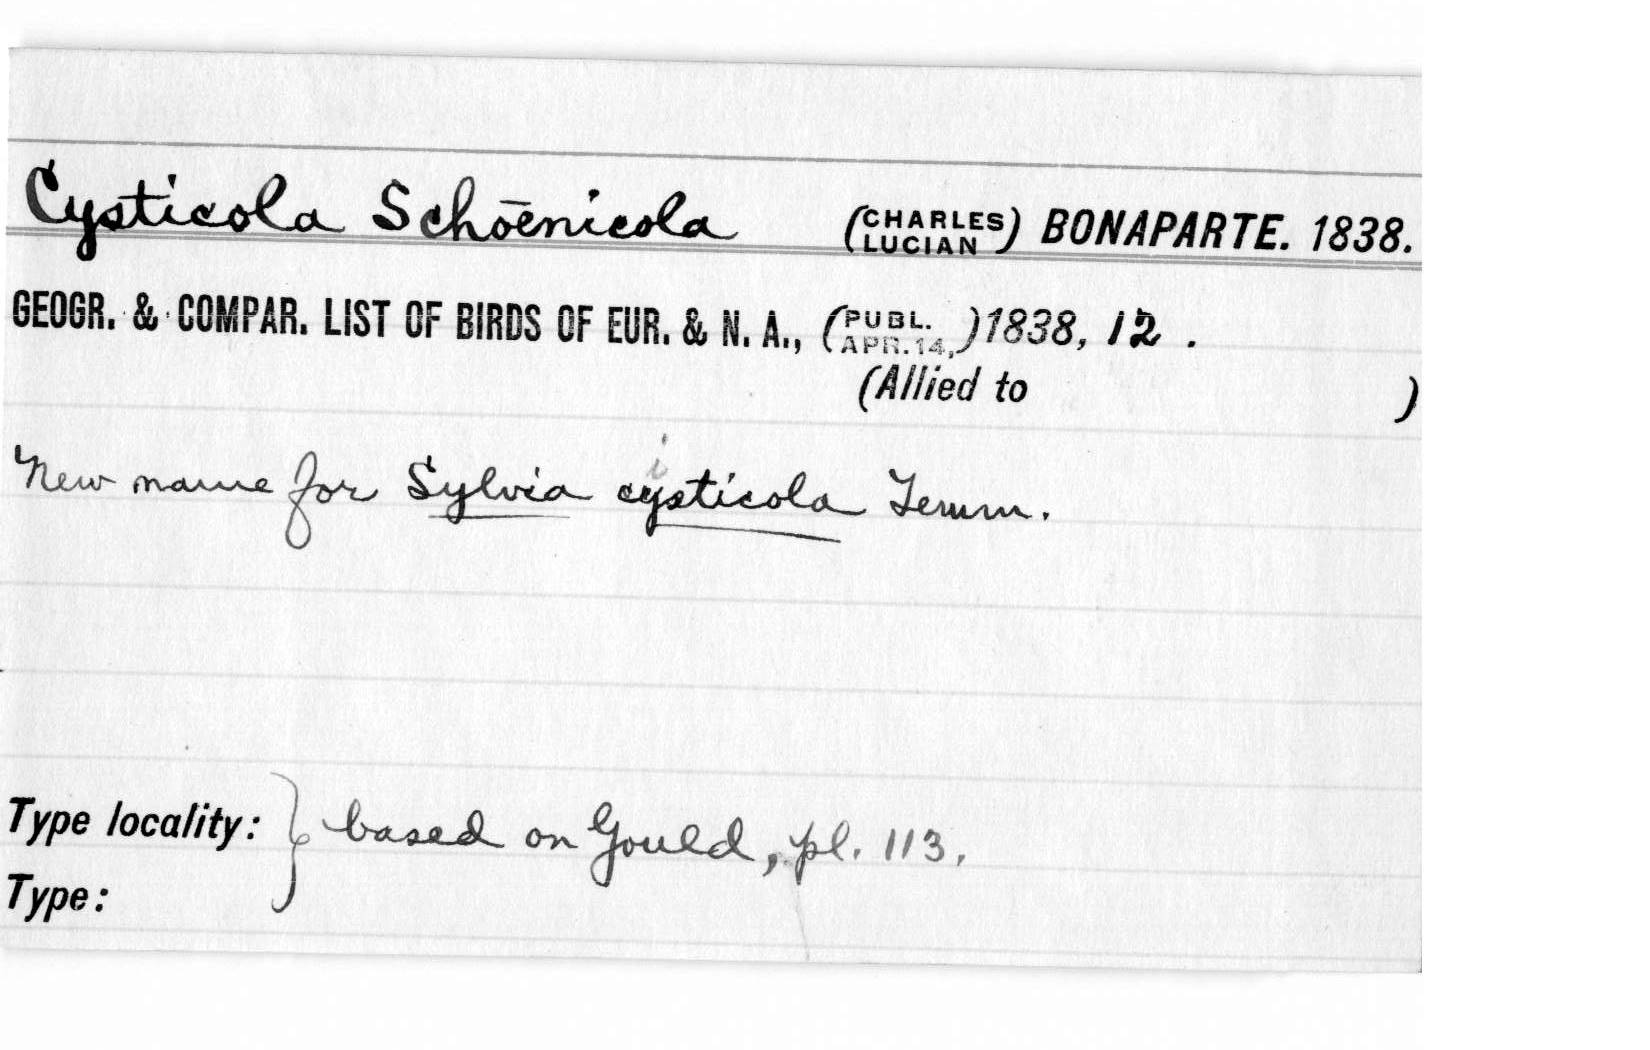 Cysticola Schoenicola (CHARLES LUCIAN) BONAPARTE. 1838.
GEOGR. & COMPAR. LIST OF BIRDS OF EUR. & N. A., (PUBL. APR. 14,) 1838, 12.
(Allied to )
i
New name for Sylvia cysticola Temm.
Type locality: } based on Gould, pl. 113.
Type: